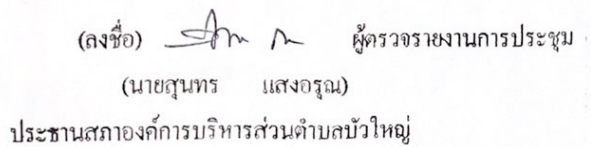 (ลงชื่อ) ผู้ตรวจรายงานการประชุม
(นายสุนทร แสงอรุณ)
ประธานสภาองค์การบริหารส่วนตำบลบัวใหญ่